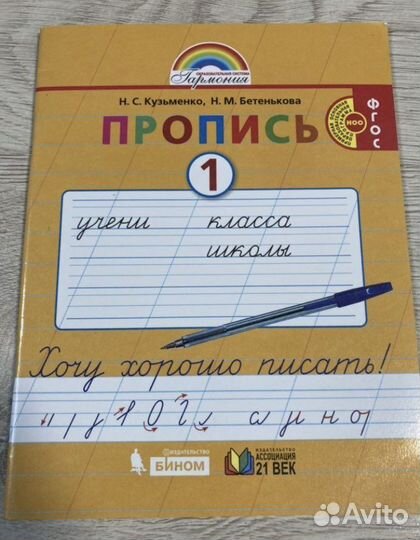 ОБРАЗОВАТЕЛЬНАЯ СИСТЕМА
Гармония
Н. С. Кузьменко, Н. М. Бетенькова
ПРОПИСЬ
НОО
ФГОС
1
учени класса
школы
Хочу хорошо писать!
ИЗДАТЕЛЬСТВО
БИНОМ
ИЗДАТЕЛЬСТВО
АССОЦИАЦИЯ
21 ВЕК
Avito